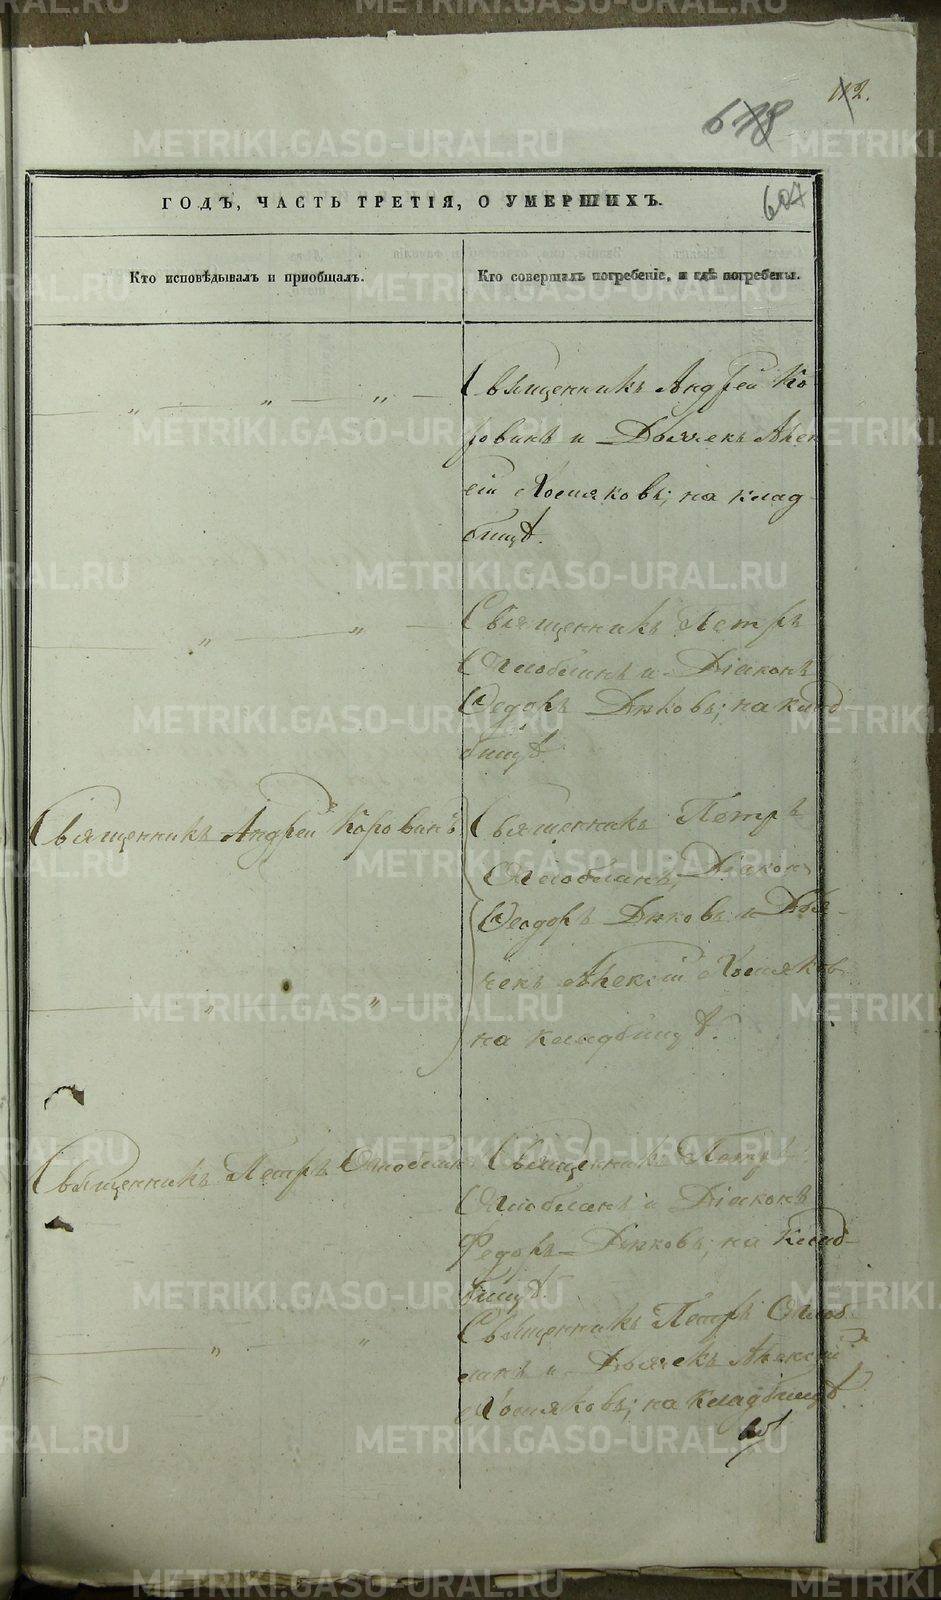 112.
618
607
ГОДЪ, ЧАСТЬ ТРЕТІЯ, О УМЕРШИХЪ.
Кто исповѣдывалъ и пріобщалъ.
Кто совершалъ погребеніе, и гдѣ погребены.
Священникъ Андрей Ко
ровинъ и Дьячекъ Алек
сій Хомяковъ; на клад
бищѣ.
Священникъ Петръ
и Діаконъ
Ѳедоръ Дюковъ; на клад-
бищѣ.
Священникъ Андрей Коровинъ
Священникъ Петръ
Діаконъ
Ѳеодоръ Дюковъ и Дья-
чекъ Алексій Хомяковъ
на кладбищѣ.
Священникъ Петръ
Священникъ Петръ
и Діаконъ
Федоръ Дюковъ; на клад-
бищѣ.
Священникъ Петръ
и Дьячекъ Алексій
Хомяковъ; на кладбищѣ.
METRIKI.GASO-URAL.RU